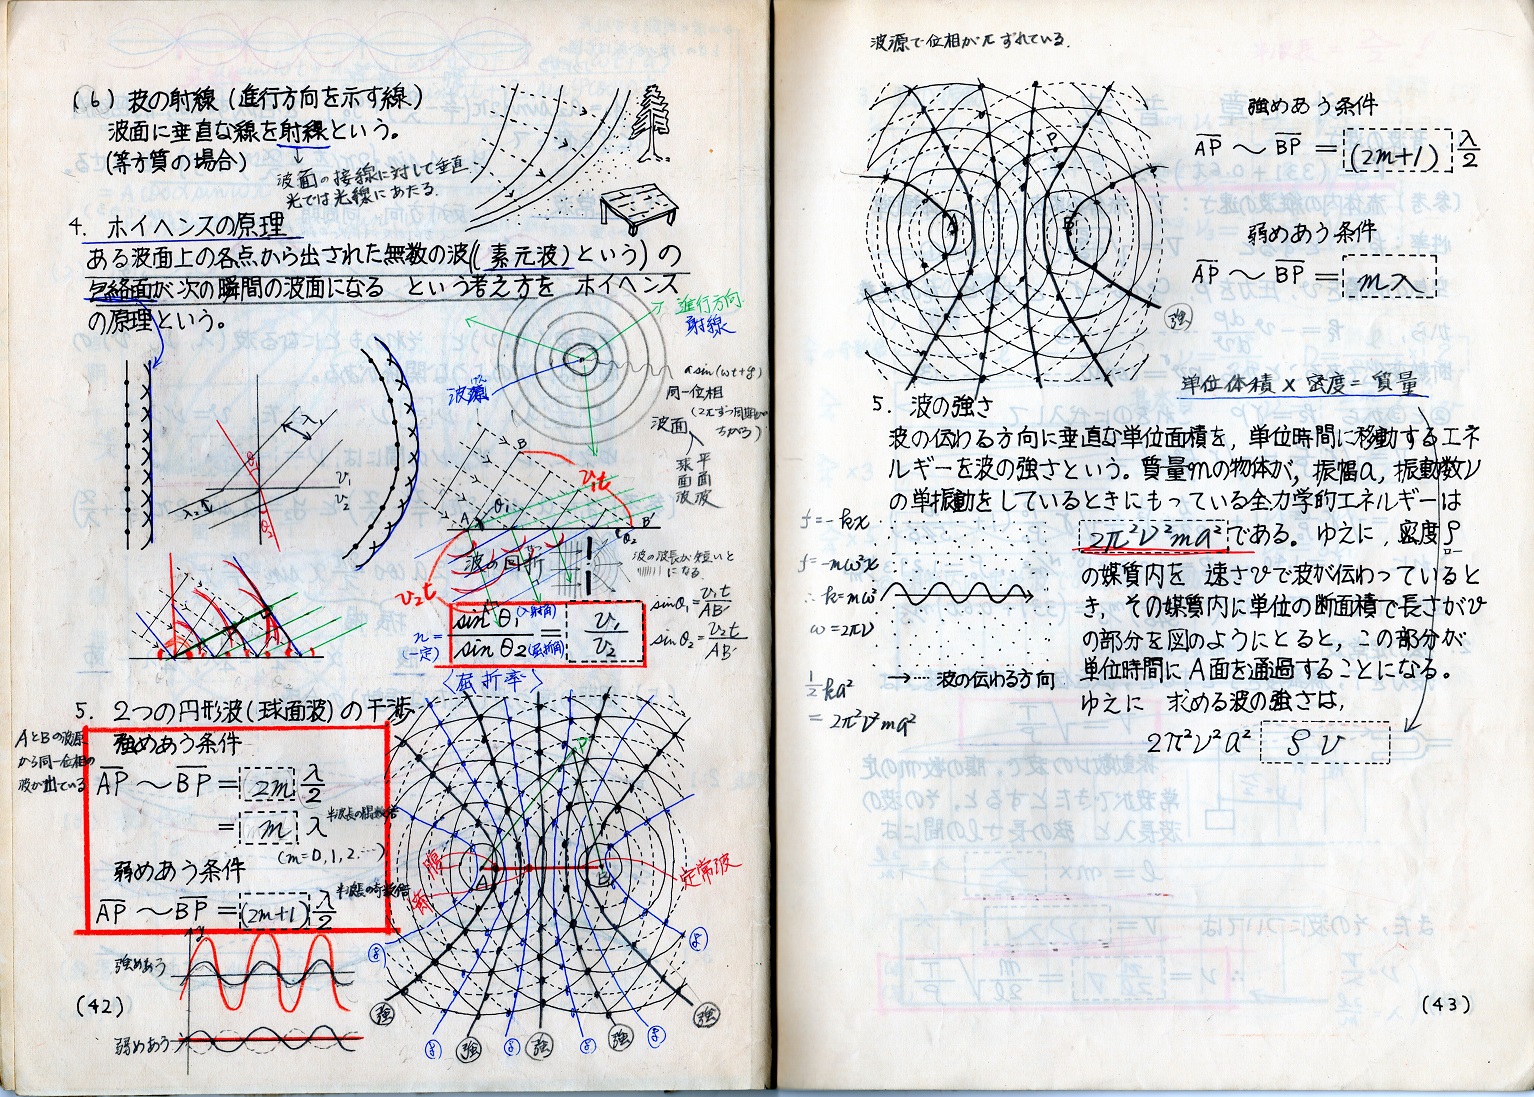 (6) 波の射線 (進行方向を示す線)
波面に垂直な線を射線という。
(等方質の場合)
波面の接線に対して垂直
光では光線にあたる.
4. ホイヘンスの原理
ある波面上の各点から出された無数の波(( 素元波 )という) の
包絡面が次の瞬間の波面になる という考え方を ホイヘンス
の原理という。
進行方向
射線
波源
a sin(ωt+δ)
同一位相
波面
平面波
球面波
λ
V₁
V₂
λ₂
θ₁
θ₂
A
B
θ₁
V₁t
B'
θ₂
波の回折
波の波長が短いと
になる.
V₂t
A'
n=
(一定)
sinθ₁(入射角) / sinθ₂(屈折角) = V₁ / V₂
sinθ₁ = V₁t / AB'
sinθ₂ = V₂t / AB'
〈屈折率〉
5. 2つの円形波(球面波)の干渉
AとBの波源
から同一位相の
波が出ている
強めあう条件
AP ～ BP = 2m λ/2
= m λ
半波長の偶数倍
(m=0,1,2.…)
弱めあう条件
半波長の奇数倍
AP ～ BP = (2m+1) λ/2
y
強めあう
弱めあう
P
腹
節
A
B
定常波
強
強
強
強
強
(42)
波源で位相がπずれている.
P
A
B
強
強めあう条件
AP ～ BP = (2m+1) λ/2
弱めあう条件
AP ～ BP = mλ
単位体積 × 密度 = 質量
5. 波の強さ
波の伝わる方向に垂直な単位面積を, 単位時間に移動するエネ
ルギーを波の強さという。質量mの物体が, 振幅a, 振動数ν
の単振動をしているときにもっている全力学的エネルギーは
2π²ν²ma² である。ゆえに, 密度ρ
の媒質内を 速さvで波が伝わっていると
き, その媒質内に単位の断面積で長さがv
の部分を図のようにとると, この部分が
単位時間にA面を通過することになる。
ゆえに 求める波の強さは,
2π²ν²a² ρv
f=-kx
f=-mω²x
∴ k=mω²
ω=2πν
1/2 ka²
= 2π²ν²ma²
→… 波の伝わる方向
(43)